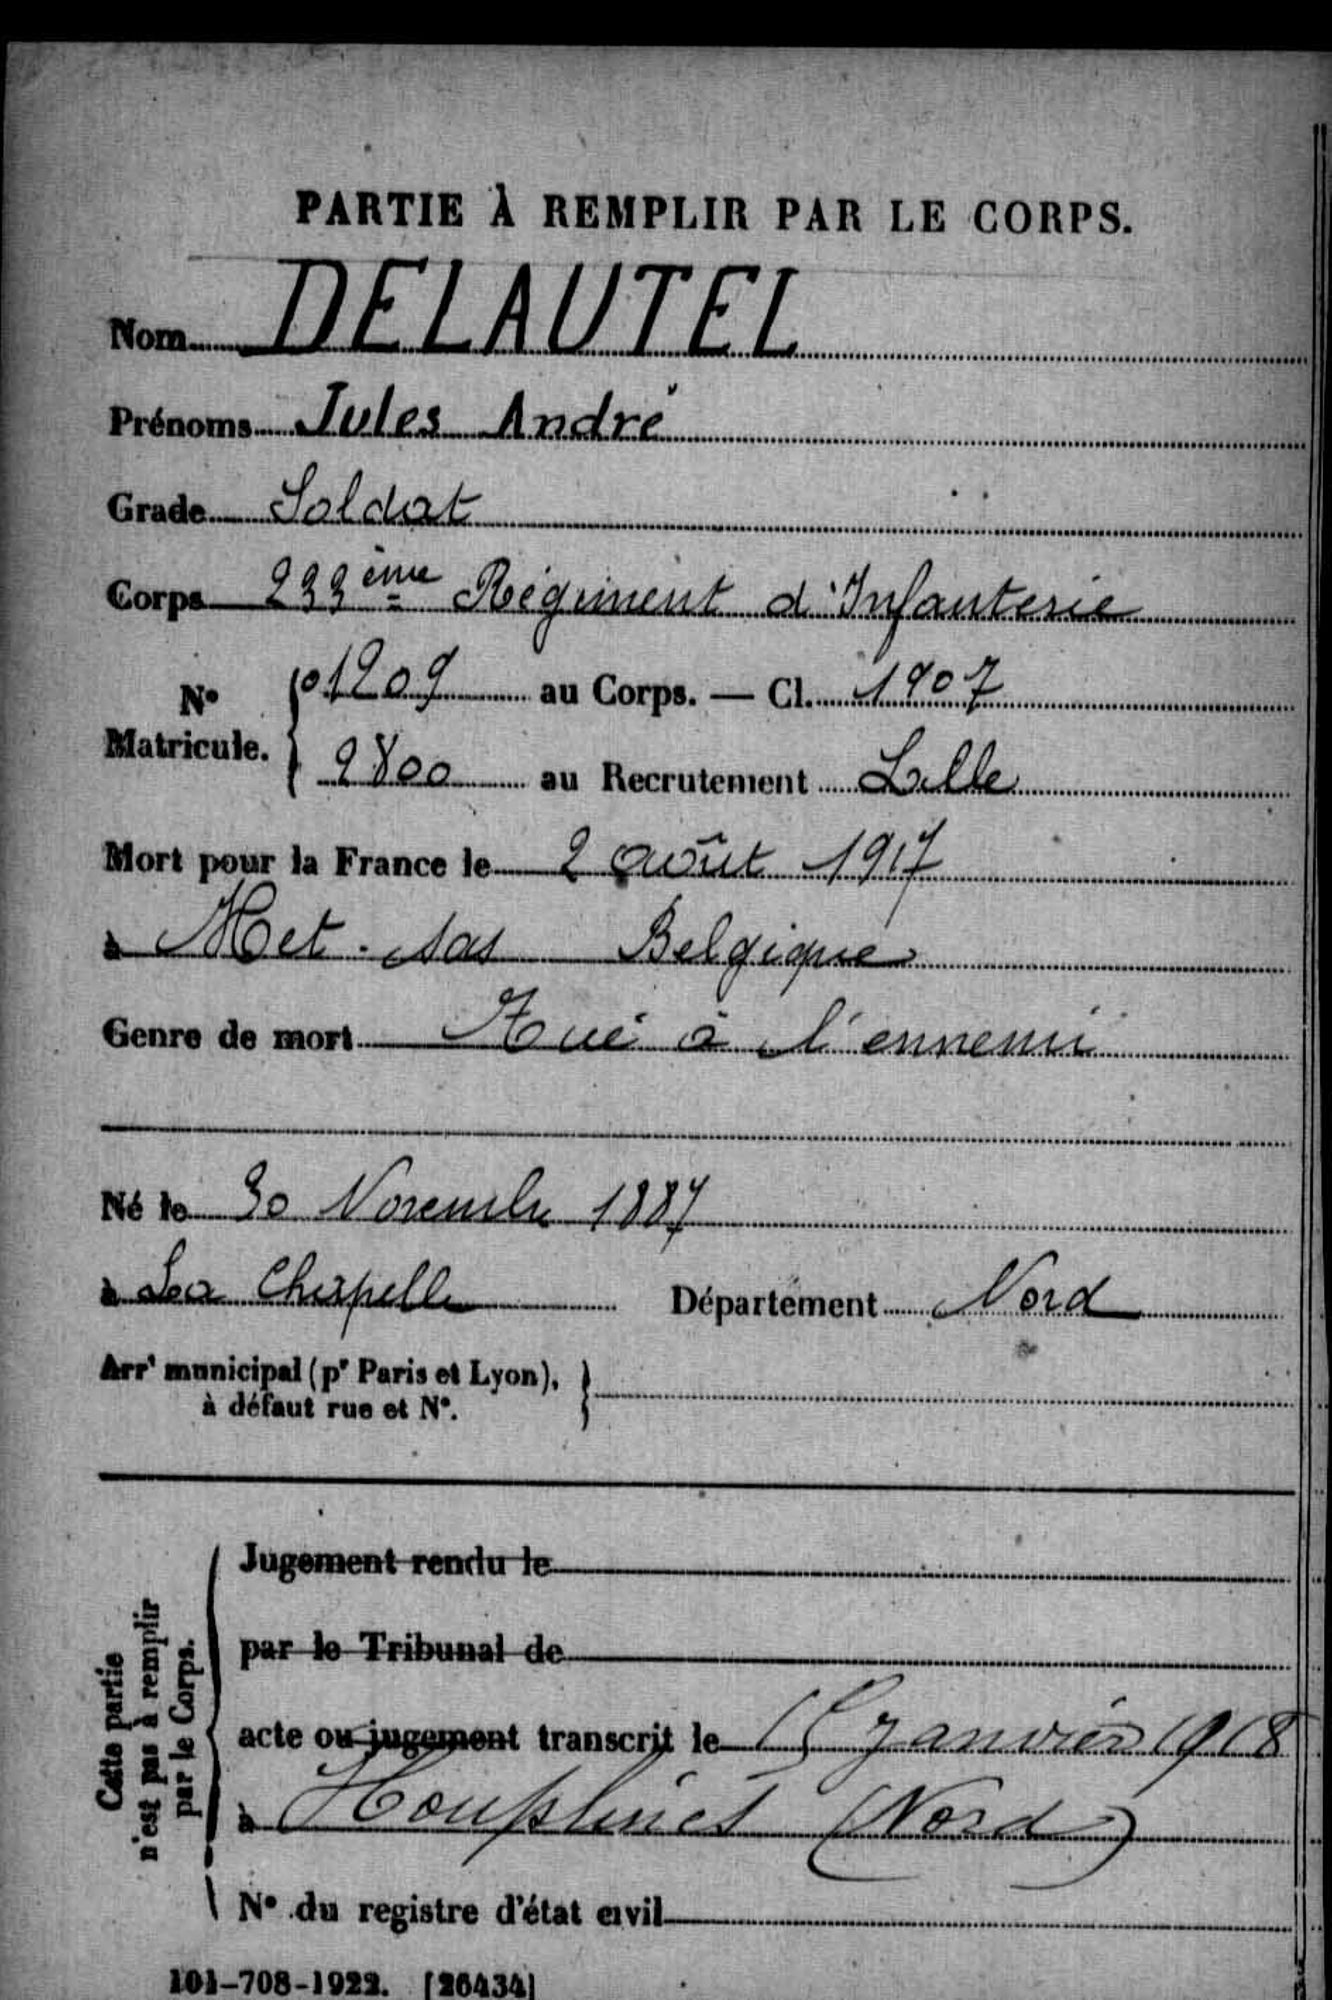 PARTIE À REMPLIR PAR LE CORPS.
Nom DELAUTEL
Prénoms Jules André
Grade Soldat
Corps 233ème Régiment d'Infanterie
N° Matricule. { 01209 au Corps. — Cl. 1907
2800 au Recrutement Lille
Mort pour la France le 2 août 1917
à Het-Sas Belgique
Genre de mort Tué à l'ennemi
Né le 30 Novembre 1887
à La Chapelle Département Nord
Arrt municipal (pr Paris et Lyon), }
à défaut rue et N°.
Cette partie
n'est pas à remplir
par le Corps.
Jugement rendu le
par le Tribunal de
acte ou jugement transcrit le 15 janvier 1918
à Houplines (Nord)
N° du registre d'état civil
101-708-1922. [26434]